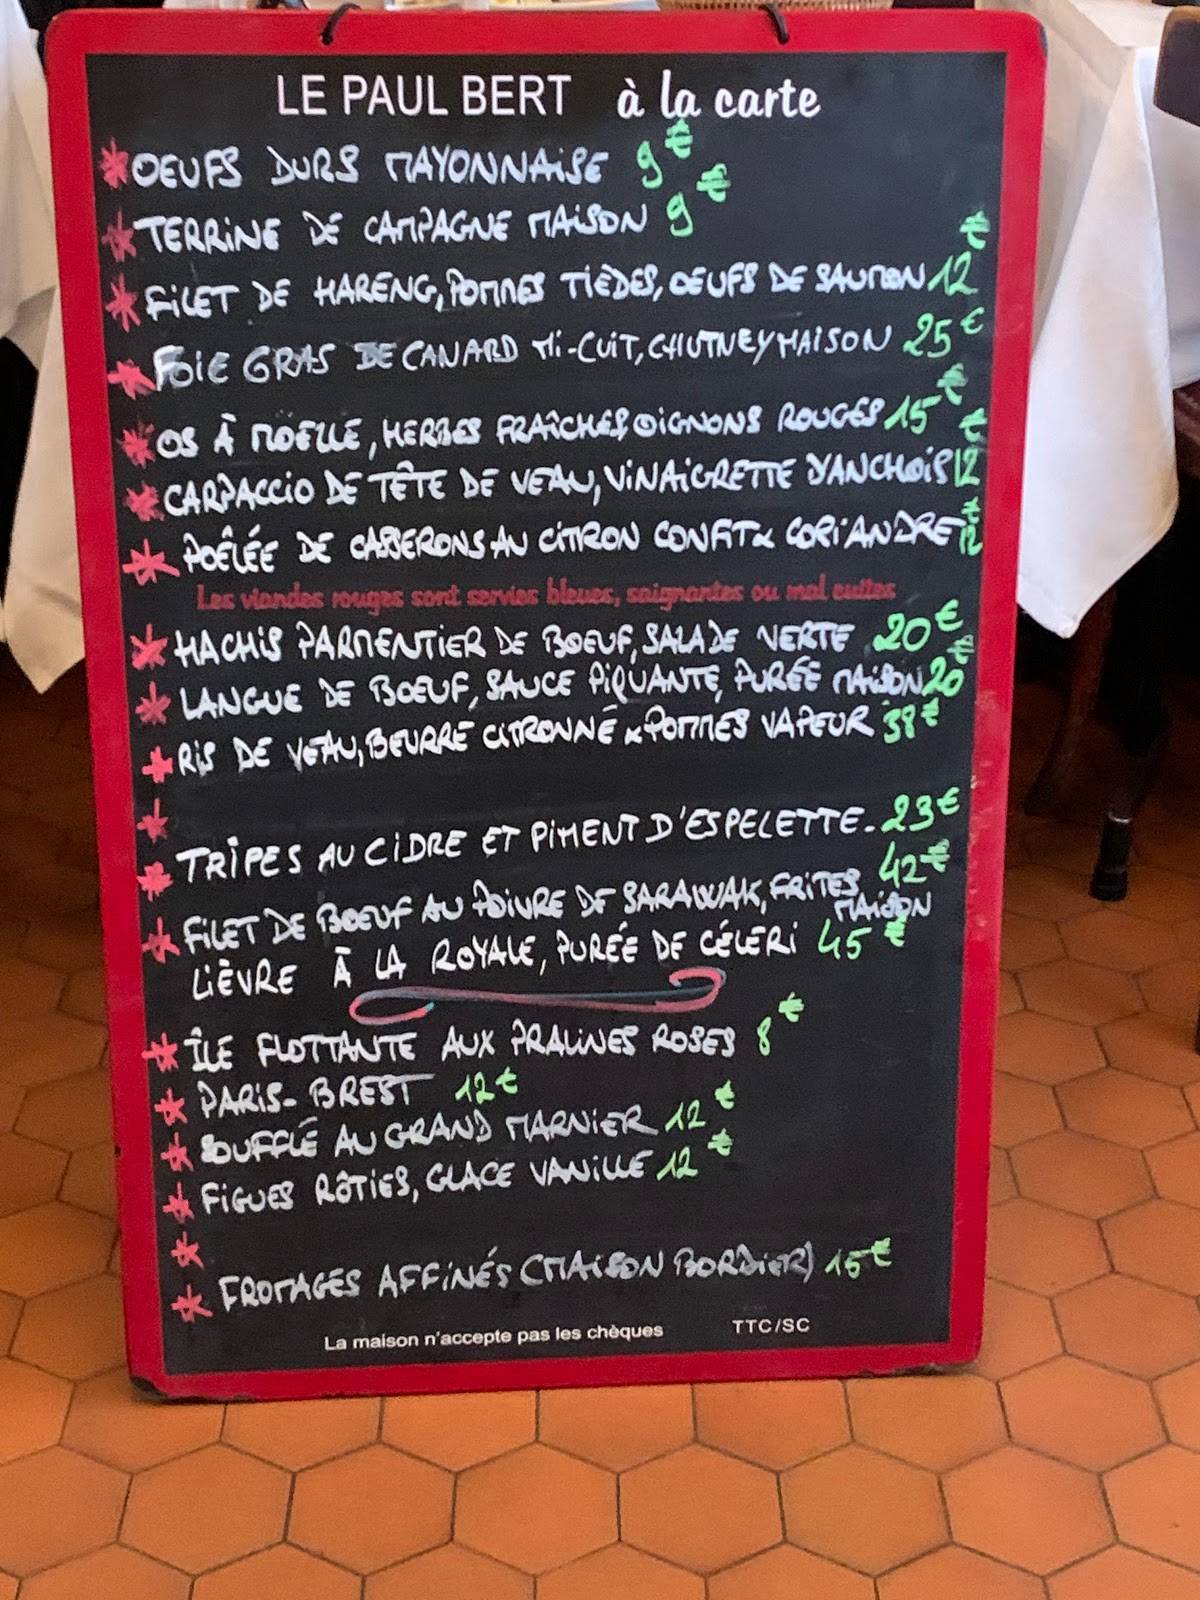 LE PAUL BERT à la carte
OEUFS DURS MAYONNAISE 9€
TERRINE DE CAMPAGNE MAISON 9€
FILET DE HARENG, POMMES TIÈDES, OEUFS DE SAUMON 12€
FOIE GRAS DE CANARD MI-CUIT, CHUTNEY MAISON 25€
OS À MOËLLE, HERBES FRAÎCHES, OIGNONS ROUGES 15€
CARPACCIO DE TÊTE DE VEAU, VINAIGRETTE D'ANCHOIS 12€
POÊLÉE DE CASSERONS AU CITRON CONFIT & CORIANDRE 12€
Les viandes rouges sont servies bleues, saignantes ou mal cuites
HACHIS PARMENTIER DE BOEUF, SALADE VERTE 20€
LANGUE DE BOEUF, SAUCE PIQUANTE, PURÉE MAISON 20€
RIS DE VEAU, BEURRE CITRONNÉ & POMMES VAPEUR 38€
TRIPES AU CIDRE ET PIMENT D'ESPELETTE - 23€
FILET DE BOEUF AU POIVRE DE SARAWAK, FRITES MAISON 42€
LIÈVRE À LA ROYALE, PURÉE DE CÉLERI 45€
ÎLE FLOTTANTE AUX PRALINES ROSES 8€
PARIS-BREST 12€
SOUFFLÉ AU GRAND MARNIER 12€
FIGUES RÔTIES, GLACE VANILLE 12€
FROMAGES AFFINÉS (MAISON BORDIER) 15€
La maison n'accepte pas les chèques TTC/SC